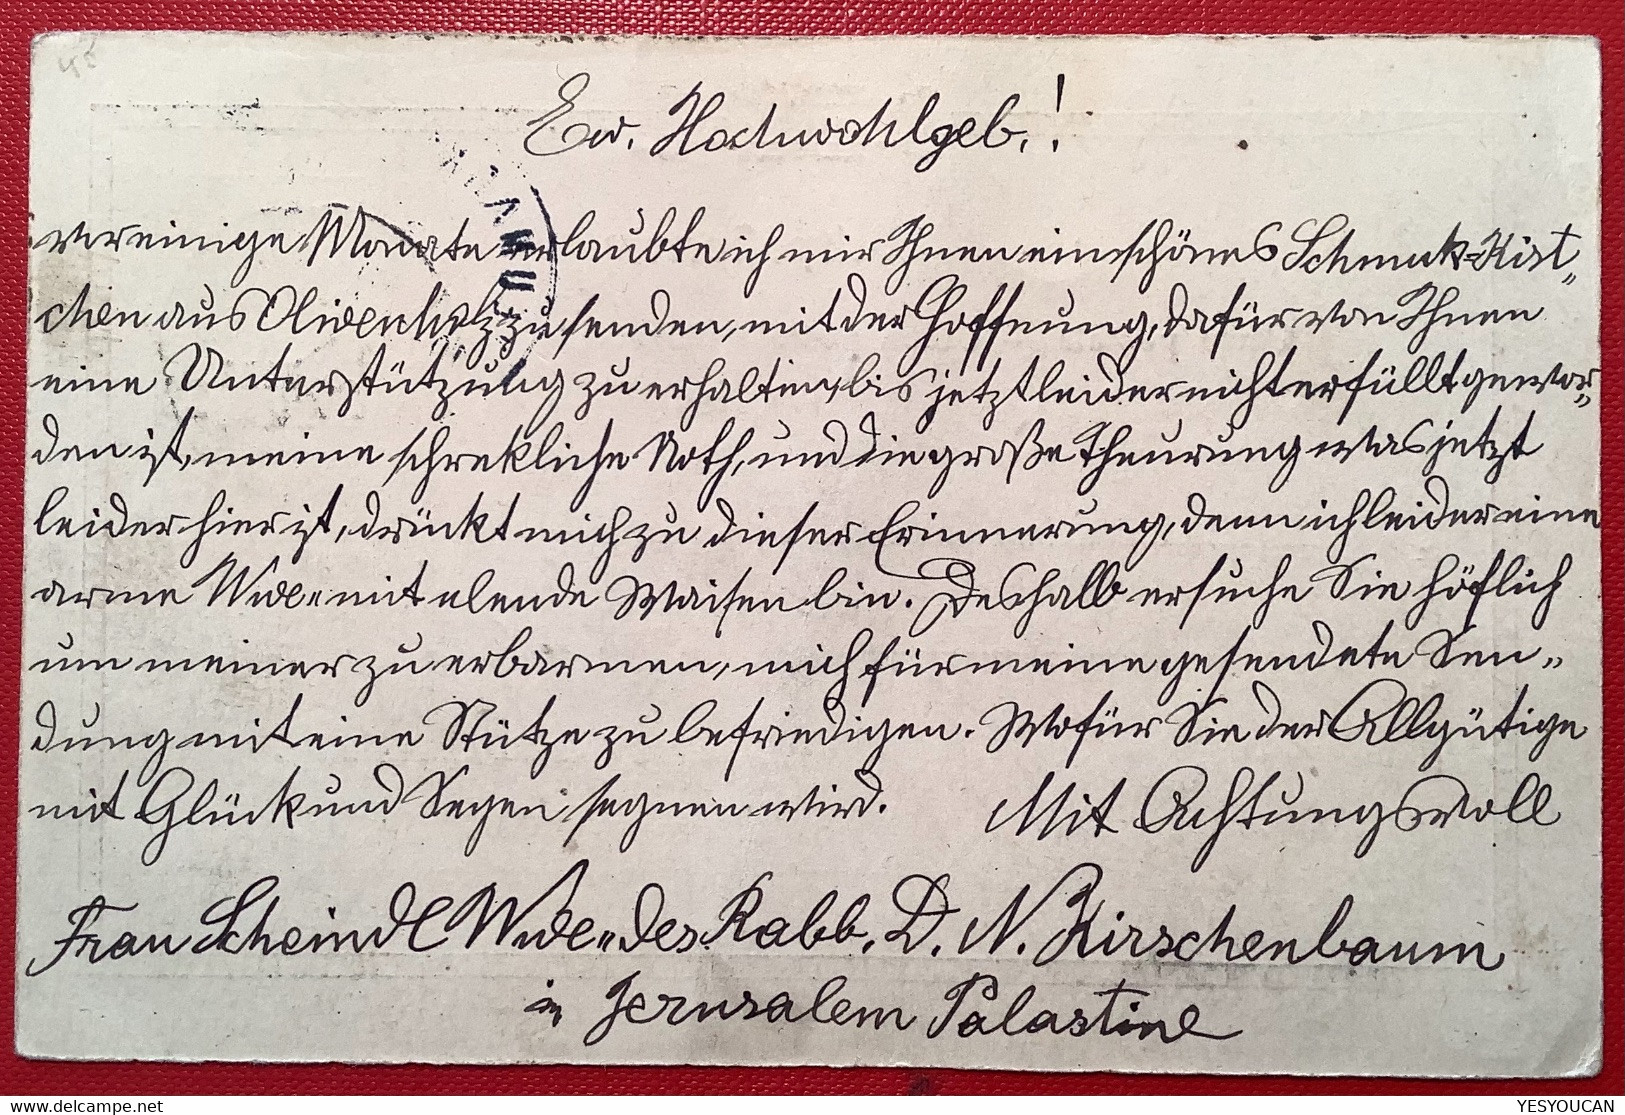 45
Ew. Hochwohlgeb.!
vor einige Monate erlaubte ich mir Ihnen ein schönes Schmuk-Kist„
chen aus Olivenholz zu senden, mit der Hoffnung, dafür von Ihnen
eine Unterstützung zu erhalten, bis jetzt leider nicht erfüllt gewor„
den ist, meine schrekliche Noth, und die große Theurung was jetzt
leider hier ist, drückt mich zu dieser Erinnerung, denn ich leider eine
arme Wwe. mit elende Waisen bin. Deshalb ersuche Sie höflich
um meiner zu erbarmen, mich für meine gesendete Sen„
dung mit eine Stütze zu befriedigen. Wofür Sie der Allgütige
mit Glück und Segen segnen wird. Mit Achtungsvoll
Frau Scheindl Wwe. des Rabb. D. N. Kirschenbaum
in Jerusalem Palastine
YESYOUCAN